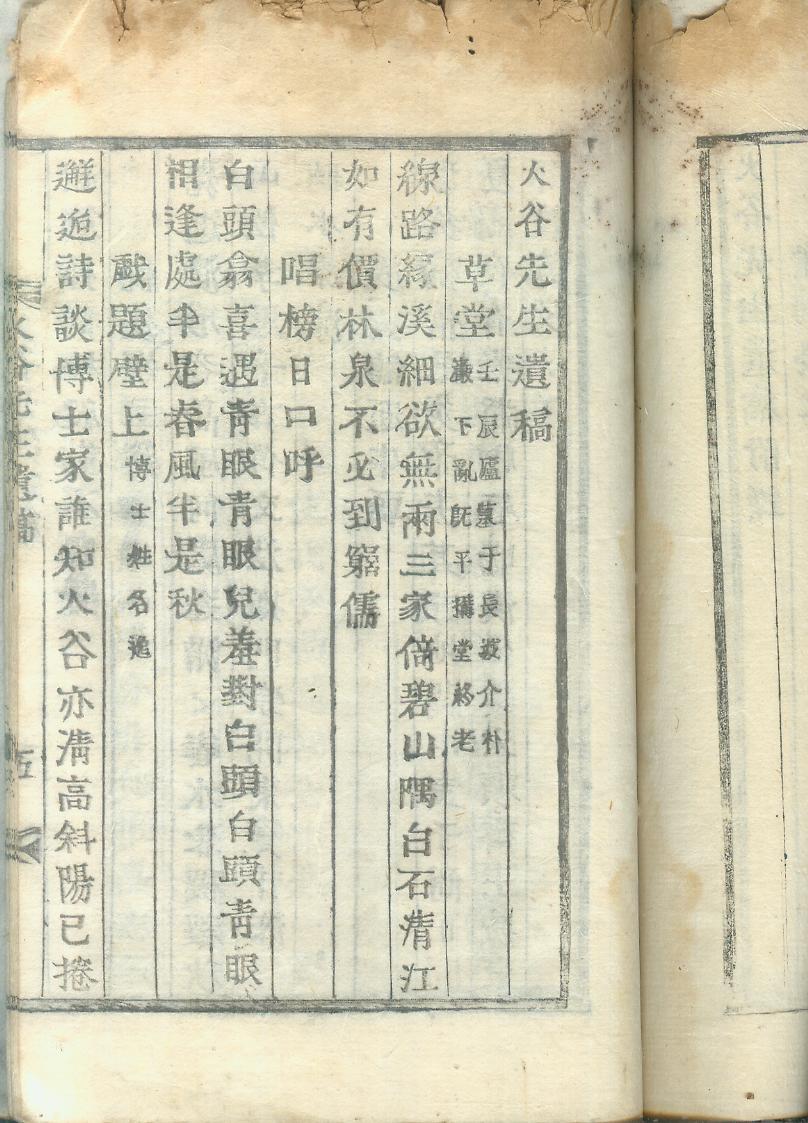 火谷先生遺稿
草堂 壬辰廬墓于長 介朴
巖下亂旣平搆堂終老
線路緣溪細欲無兩三家倚碧山隅白石淸江
如有價林泉不必到窮儒
唱榜日口呼
白頭翁喜遇靑眼靑眼兒羞對白頭白頭靑眼
相逢處半是春風半是秋
戱題壁上 博士姓名逸
邂逅詩談博士家誰知火谷亦淸高斜陽已捲
火谷先生遺稿 五